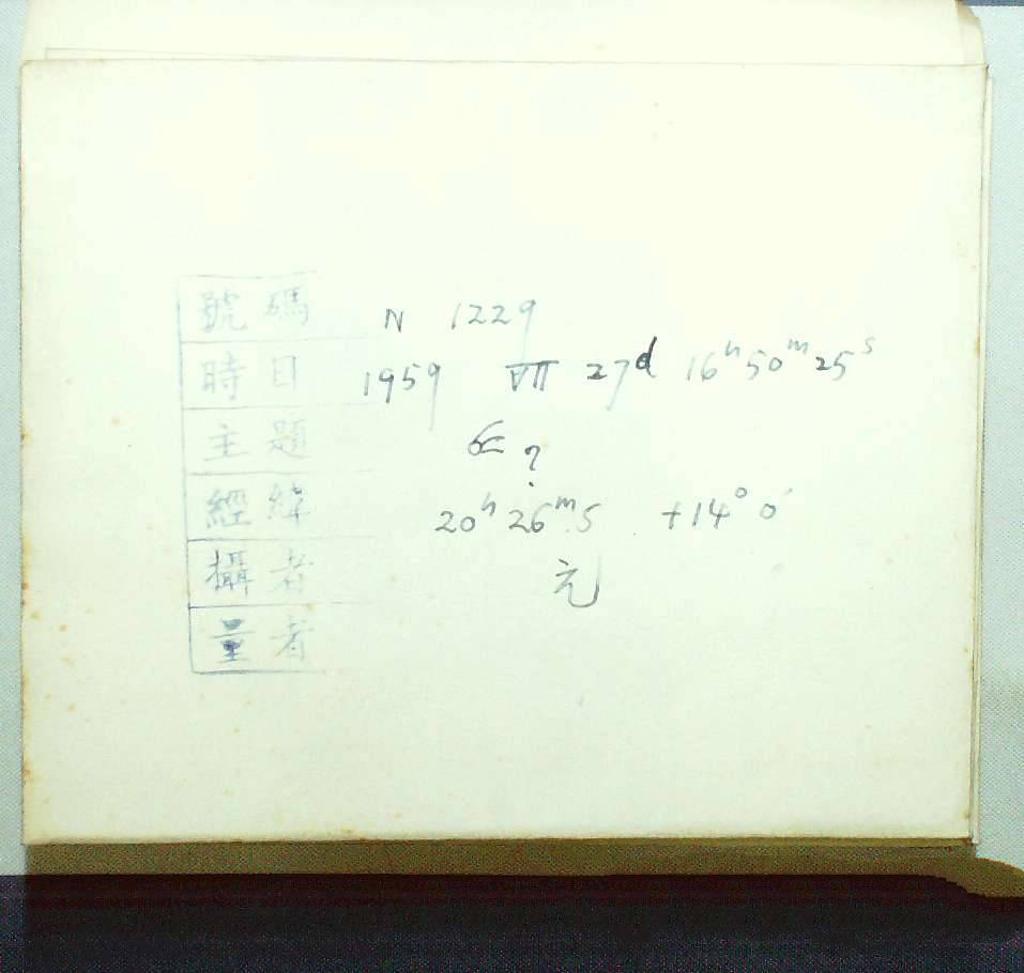 號碼 N 1229
時日 1959 VII 27d 16h 50m 25s
主題 ?
經緯 20h 26m.5 +14° 0′
攝者 元
量者